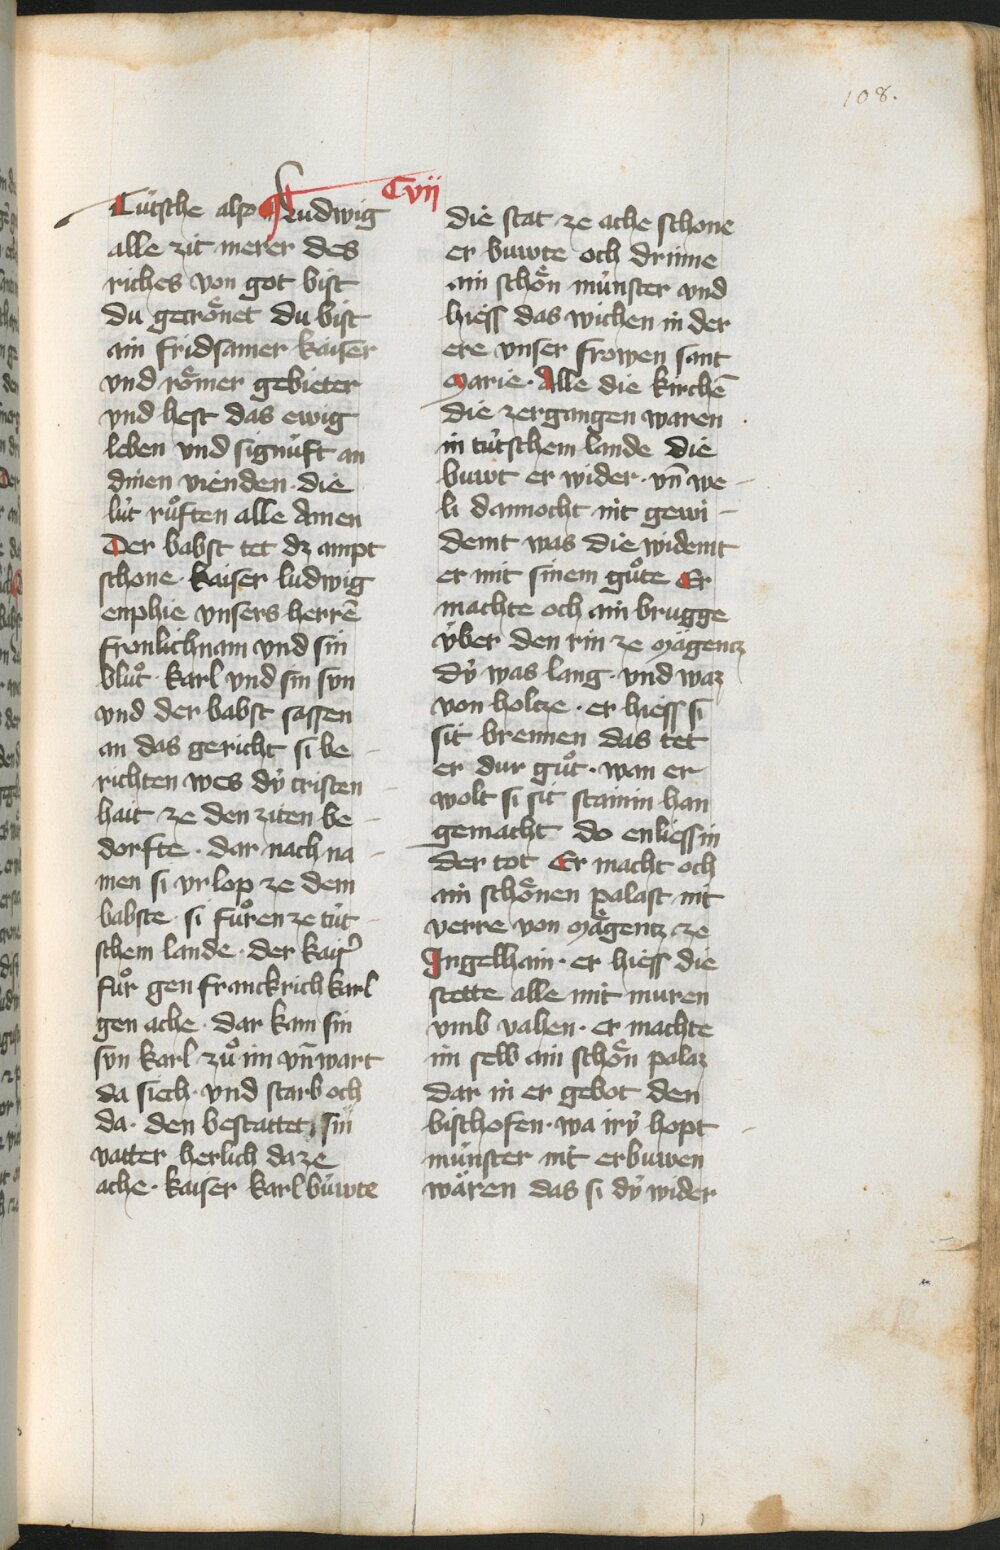 108.
Cvij
Tútsche also Ludwig
alle zit merer des
riches von got bist
du gecrőnet du bist
ain fridsamer kaiser
vnd rőmer gebieter
vnd hest das ewig
leben vnd signúft an
dinen vienden · die
lút růften alle Amen
Der babst tet dz ampt
schone · kaiser ludwig
enphie vnsers herrē
fronlichnam vnd sin
blůt · karl vnd sin sun
vnd der babst sassen
an das gericht si be
richten wes dý cristen
hait ze den ziten be
dorfte · dar nach na
men si vrlop ze dem
babste · si fůren ze tút
schem lande · der kais̾
fůr gen franckrich karl
gen ache · dar kam sin
sun karl zů im vn̄ wart
da siech · vnd starb och
da · den bestattet sin
vatter herlich da ze
ache · kaiser karl búwte
die stat ze ache schone
er buwte och drinne
ain schőn múnster vnd
hiess das wichen in der
ere vnser frowen sant
Marie · Alle die kirchē
die zergangen waren
in tútschem lande die
buwt er wider · vn̄ we
li dannocht nit gewi
demt was die widemt
er mit sinem gůte Er
machte och ain brugge
v́ber den rin ze Mägentz
dý was lang · vnd waz
von holtze · er hiess si
sit brennen das tet
er dur gůt · wan er
wolt si sit stainin han
gemacht do enliess in
der tot Er macht och
ain schőnen palast nit
verre von Mägentz ze
Ingelhain · er hiess die
stette alle mit muren
vmb vahen · er machte
im selb ain schőn palaz
dar in er gebot den
bischofen · wa irý hopt
múnster nit erbuwen
wären das si dý wider